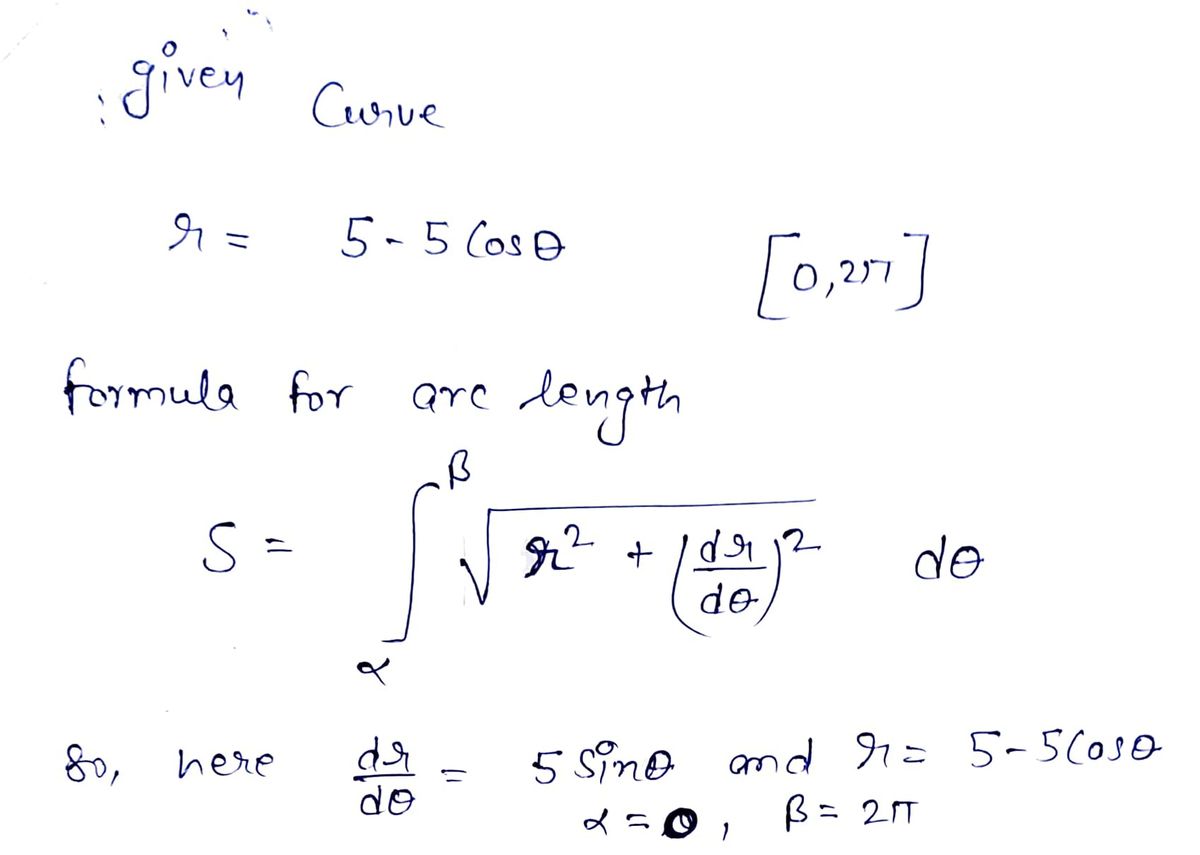 given Curve
r = 5 - 5 Cosθ [0, 2π]
formula for arc length
S = ∫_α^β √(r² + (dr/dθ)²) dθ
So, here dr/dθ = 5 Sinθ and r = 5 - 5Cosθ
α = 0, β = 2π